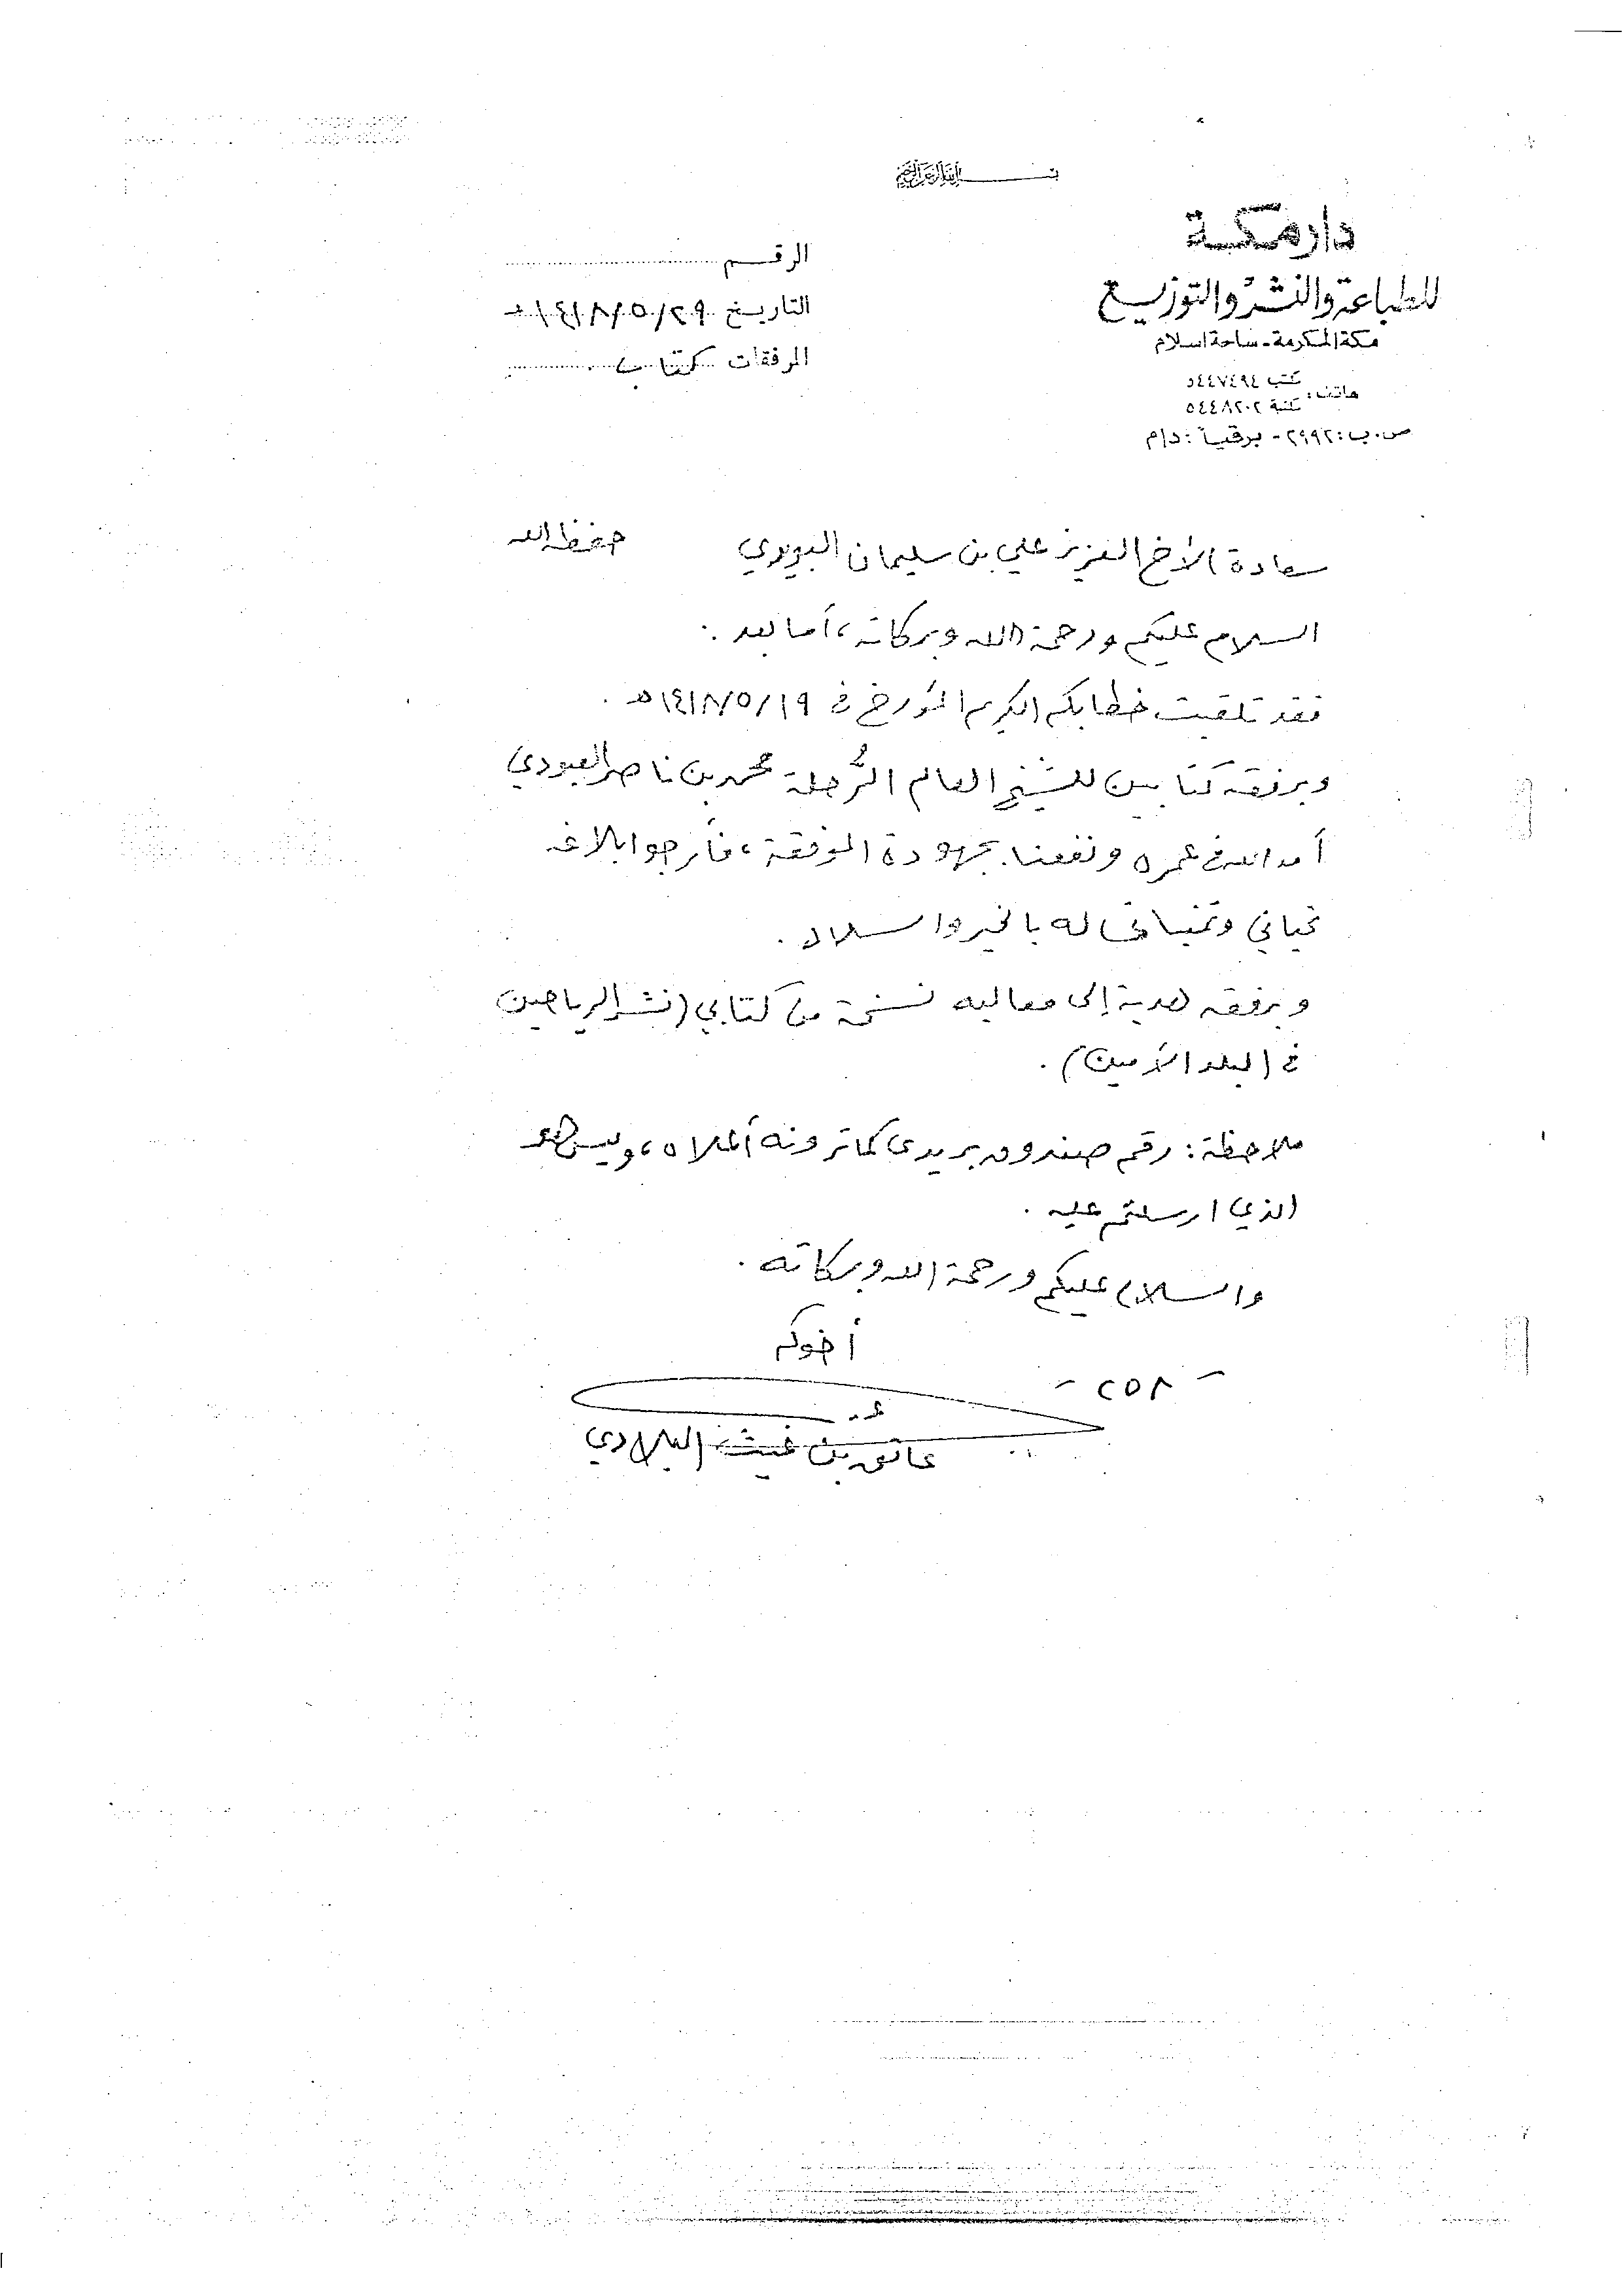 بسم الله الرحمن الرحيم
دار مكة
للطباعة والنشر والتوزيع
مكة المكرمة - ساحة اسلام
هاتف: مكتب ٥٤٤٧٤٩٤
مكتبة ٥٤٤٨٢٠٢
ص.ب: ٢٩٩٢ - برقياً: دام
الرقم
التاريخ ١٤١٨/٥/٢٩ هـ
المرفقات كتاب
سعادة الأخ العزيز علي بن سليمان البويدي حفظه الله
السلام عليكم ورحمة الله وبركاته، أما بعد:
فقد تلقيت خطابكم الكريم المؤرخ في ١٤١٨/٥/١٩هـ.
وبرفقه كتابين للشيخ العالم الرُّحلة محمد بن ناصر العبودي
أمد الله في عمره ونفعنا بجهوده الموفقة، فأرجو ابلاغه
تحياتي وتمنياتي له بالخير والسلام.
وبرفقه هدية إلى معاليه نسخة من كتابي (نشر الرياحين
في البلد الأمين).
ملاحظة: رقم صندوق بريدي كما ترونه أعلاه، وليس هو
الذي ارسلتم عليه.
والسلام عليكم ورحمة الله وبركاته.
أخوكم
- ٢٥٨ -
عاتق بن غيث البلادي